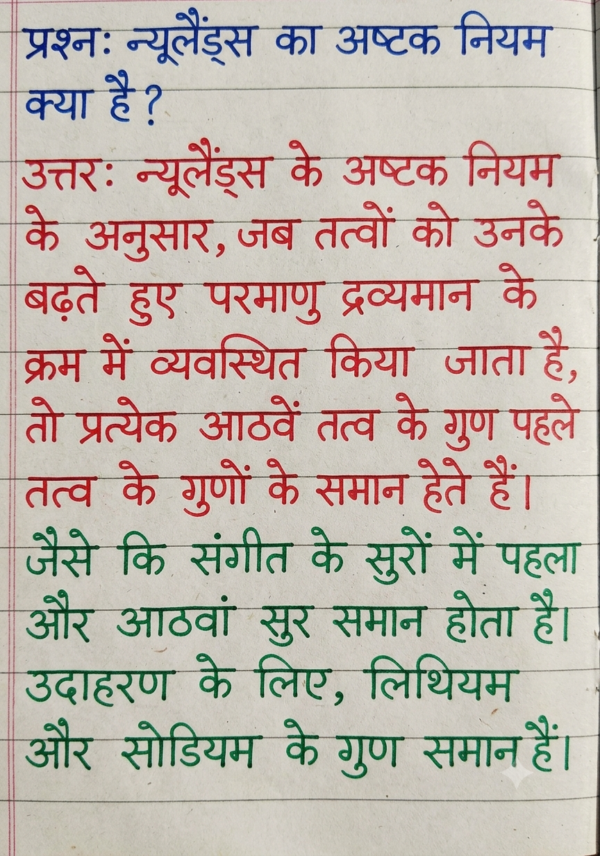 प्रश्न: न्यूलैंड्स का अष्टक नियम
क्या है?
उत्तर: न्यूलैंड्स के अष्टक नियम
के अनुसार, जब तत्वों को उनके
बढ़ते हुए परमाणु द्रव्यमान के
क्रम में व्यवस्थित किया जाता है,
तो प्रत्येक आठवें तत्व के गुण पहले
तत्व के गुणों के समान हेते हैं।
जैसे कि संगीत के सुरों में पहला
और आठवां सुर समान होता है।
उदाहरण के लिए, लिथियम
और सोडियम के गुण समान हैं।